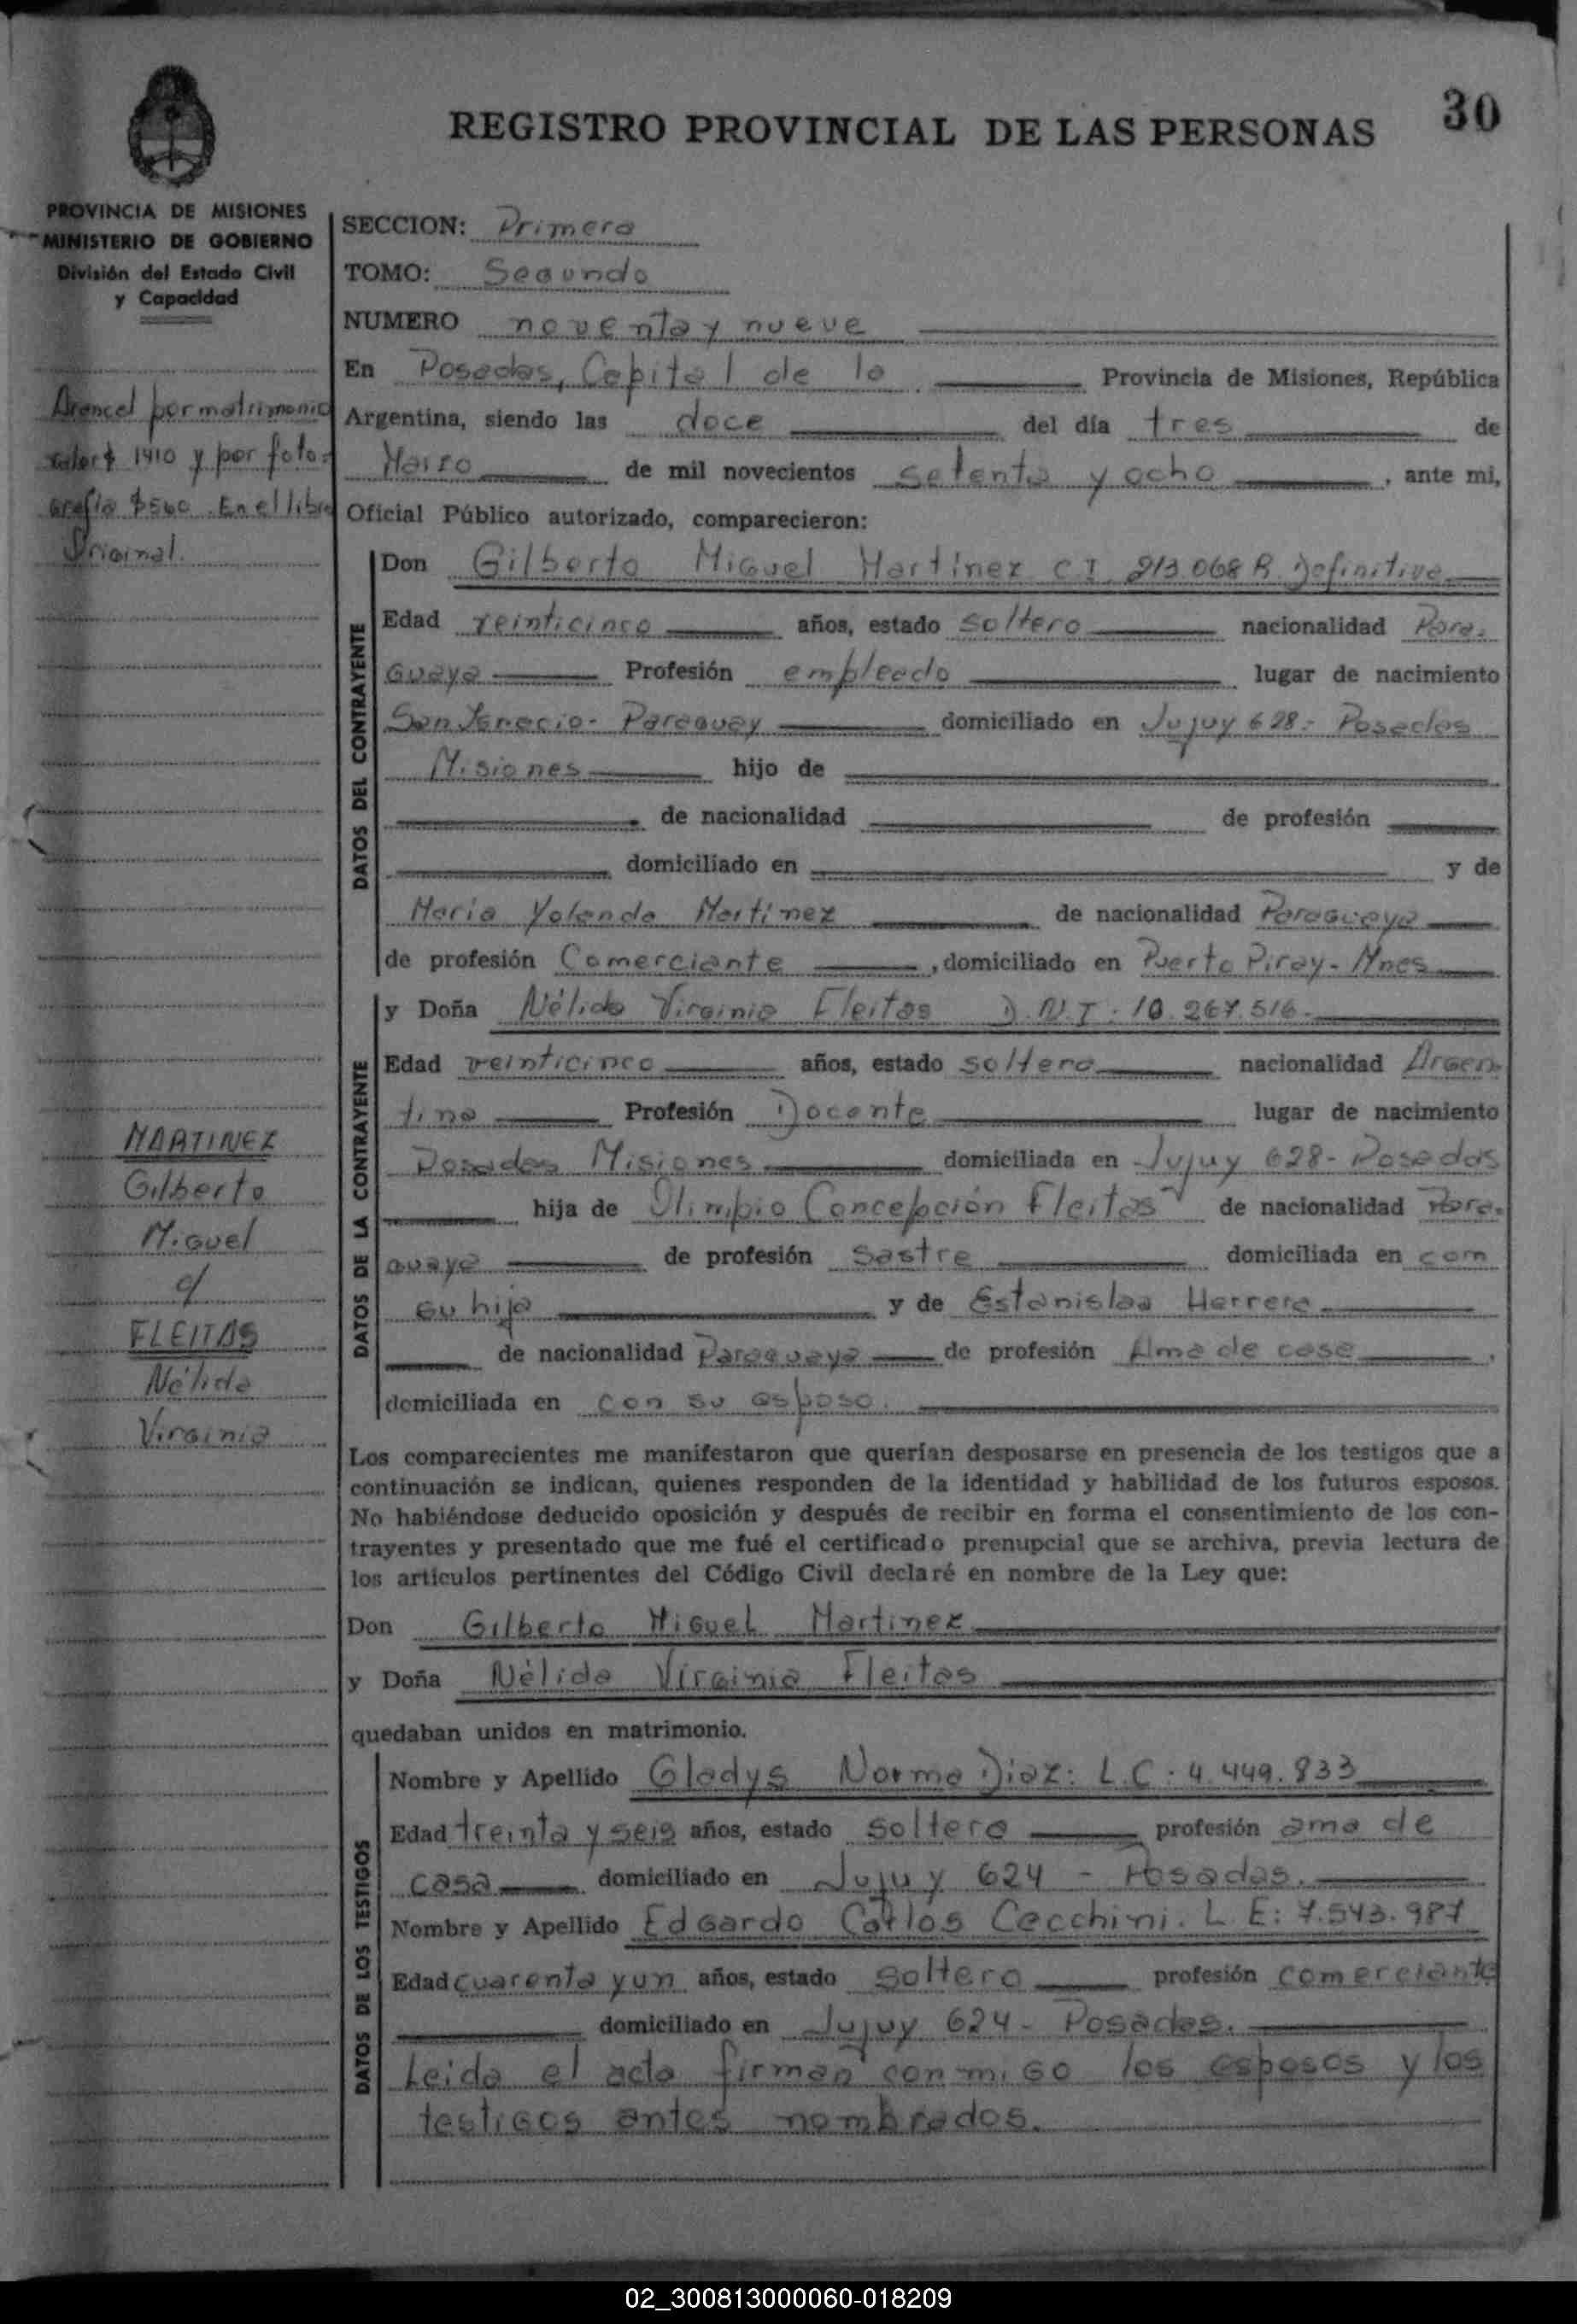 30
REGISTRO PROVINCIAL DE LAS PERSONAS
PROVINCIA DE MISIONES
MINISTERIO DE GOBIERNO
División del Estado Civil
y Capacidad
Arancel por matrimonio
valor $ 1410 y por foto-
grafía $560. En el libro
Original.
MARTINEZ
Gilberto
Miguel
c/
FLEITAS
Nélida
Virginia
SECCION: Primera
TOMO: Segundo
NUMERO noventa y nueve
En Posadas, Capital de la Provincia de Misiones, República
Argentina, siendo las doce del día tres de
Marzo de mil novecientos setenta y ocho, ante mi,
Oficial Público autorizado, comparecieron:
DATOS DEL CONTRAYENTE
Don Gilberto Miguel Martínez C.I. 213.068 R. Definitiva
Edad veinticinco años, estado soltero nacionalidad Para-
guaya Profesión empleado lugar de nacimiento
San Ignacio - Paraguay domiciliado en Jujuy 628 - Posadas
Misiones hijo de
de nacionalidad de profesión
domiciliado en y de
María Yolanda Martínez de nacionalidad Paraguaya
de profesión Comerciante, domiciliado en Puerto Piray - Mnes
DATOS DE LA CONTRAYENTE
y Doña Nélida Virginia Fleitas D.N.I: 10.267.516.
Edad veinticinco años, estado soltera nacionalidad Argen
tina Profesión Docente lugar de nacimiento
Posadas Misiones domiciliada en Jujuy 628 - Posadas
hija de Olimpio Concepción Fleitas de nacionalidad Para-
guaya de profesión Sastre domiciliada en con
su hija y de Estanislaa Herrera
de nacionalidad Paraguaya de profesión Ama de casa,
domiciliada en con su esposo.
Los comparecientes me manifestaron que querían desposarse en presencia de los testigos que a
continuación se indican, quienes responden de la identidad y habilidad de los futuros esposos.
No habiéndose deducido oposición y después de recibir en forma el consentimiento de los con-
trayentes y presentado que me fué el certificado prenupcial que se archiva, previa lectura de
los artículos pertinentes del Código Civil declaré en nombre de la Ley que:
Don Gilberto Miguel Martinez
y Doña Nélida Virginia Fleitas
quedaban unidos en matrimonio.
DATOS DE LOS TESTIGOS
Nombre y Apellido Gladys Norma Diaz: L.C: 4.449.833
Edad treinta y seis años, estado soltera profesión ama de
casa domiciliado en Jujuy 624 - Posadas.
Nombre y Apellido Edgardo Carlos Cecchini. L.E: 7.543.987
Edad cuarenta y un años, estado soltero profesión comerciante
domiciliado en Jujuy 624 - Posadas.
Leida el acta firman conmigo los esposos y los
testigos antes nombrados.
02_300813000060-018209